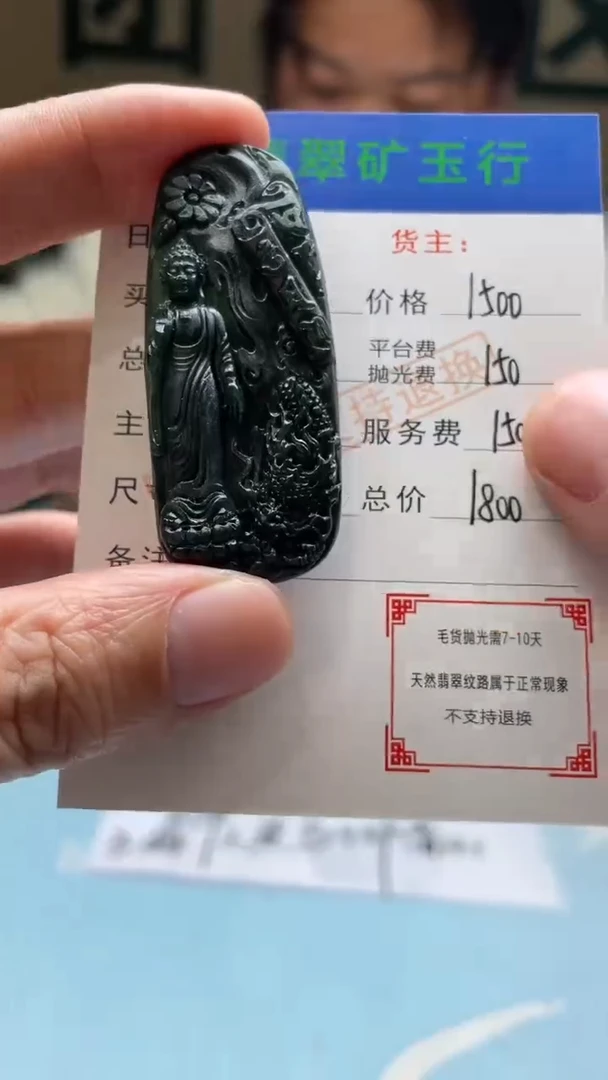 翠矿玉行
日
货主：
买
价格 1500
总
平台费
抛光费 150
主
服务费 150
尺
总价 1800
备注
持退换
毛货抛光需7-10天
天然翡翠纹路属于正常现象
不支持退换